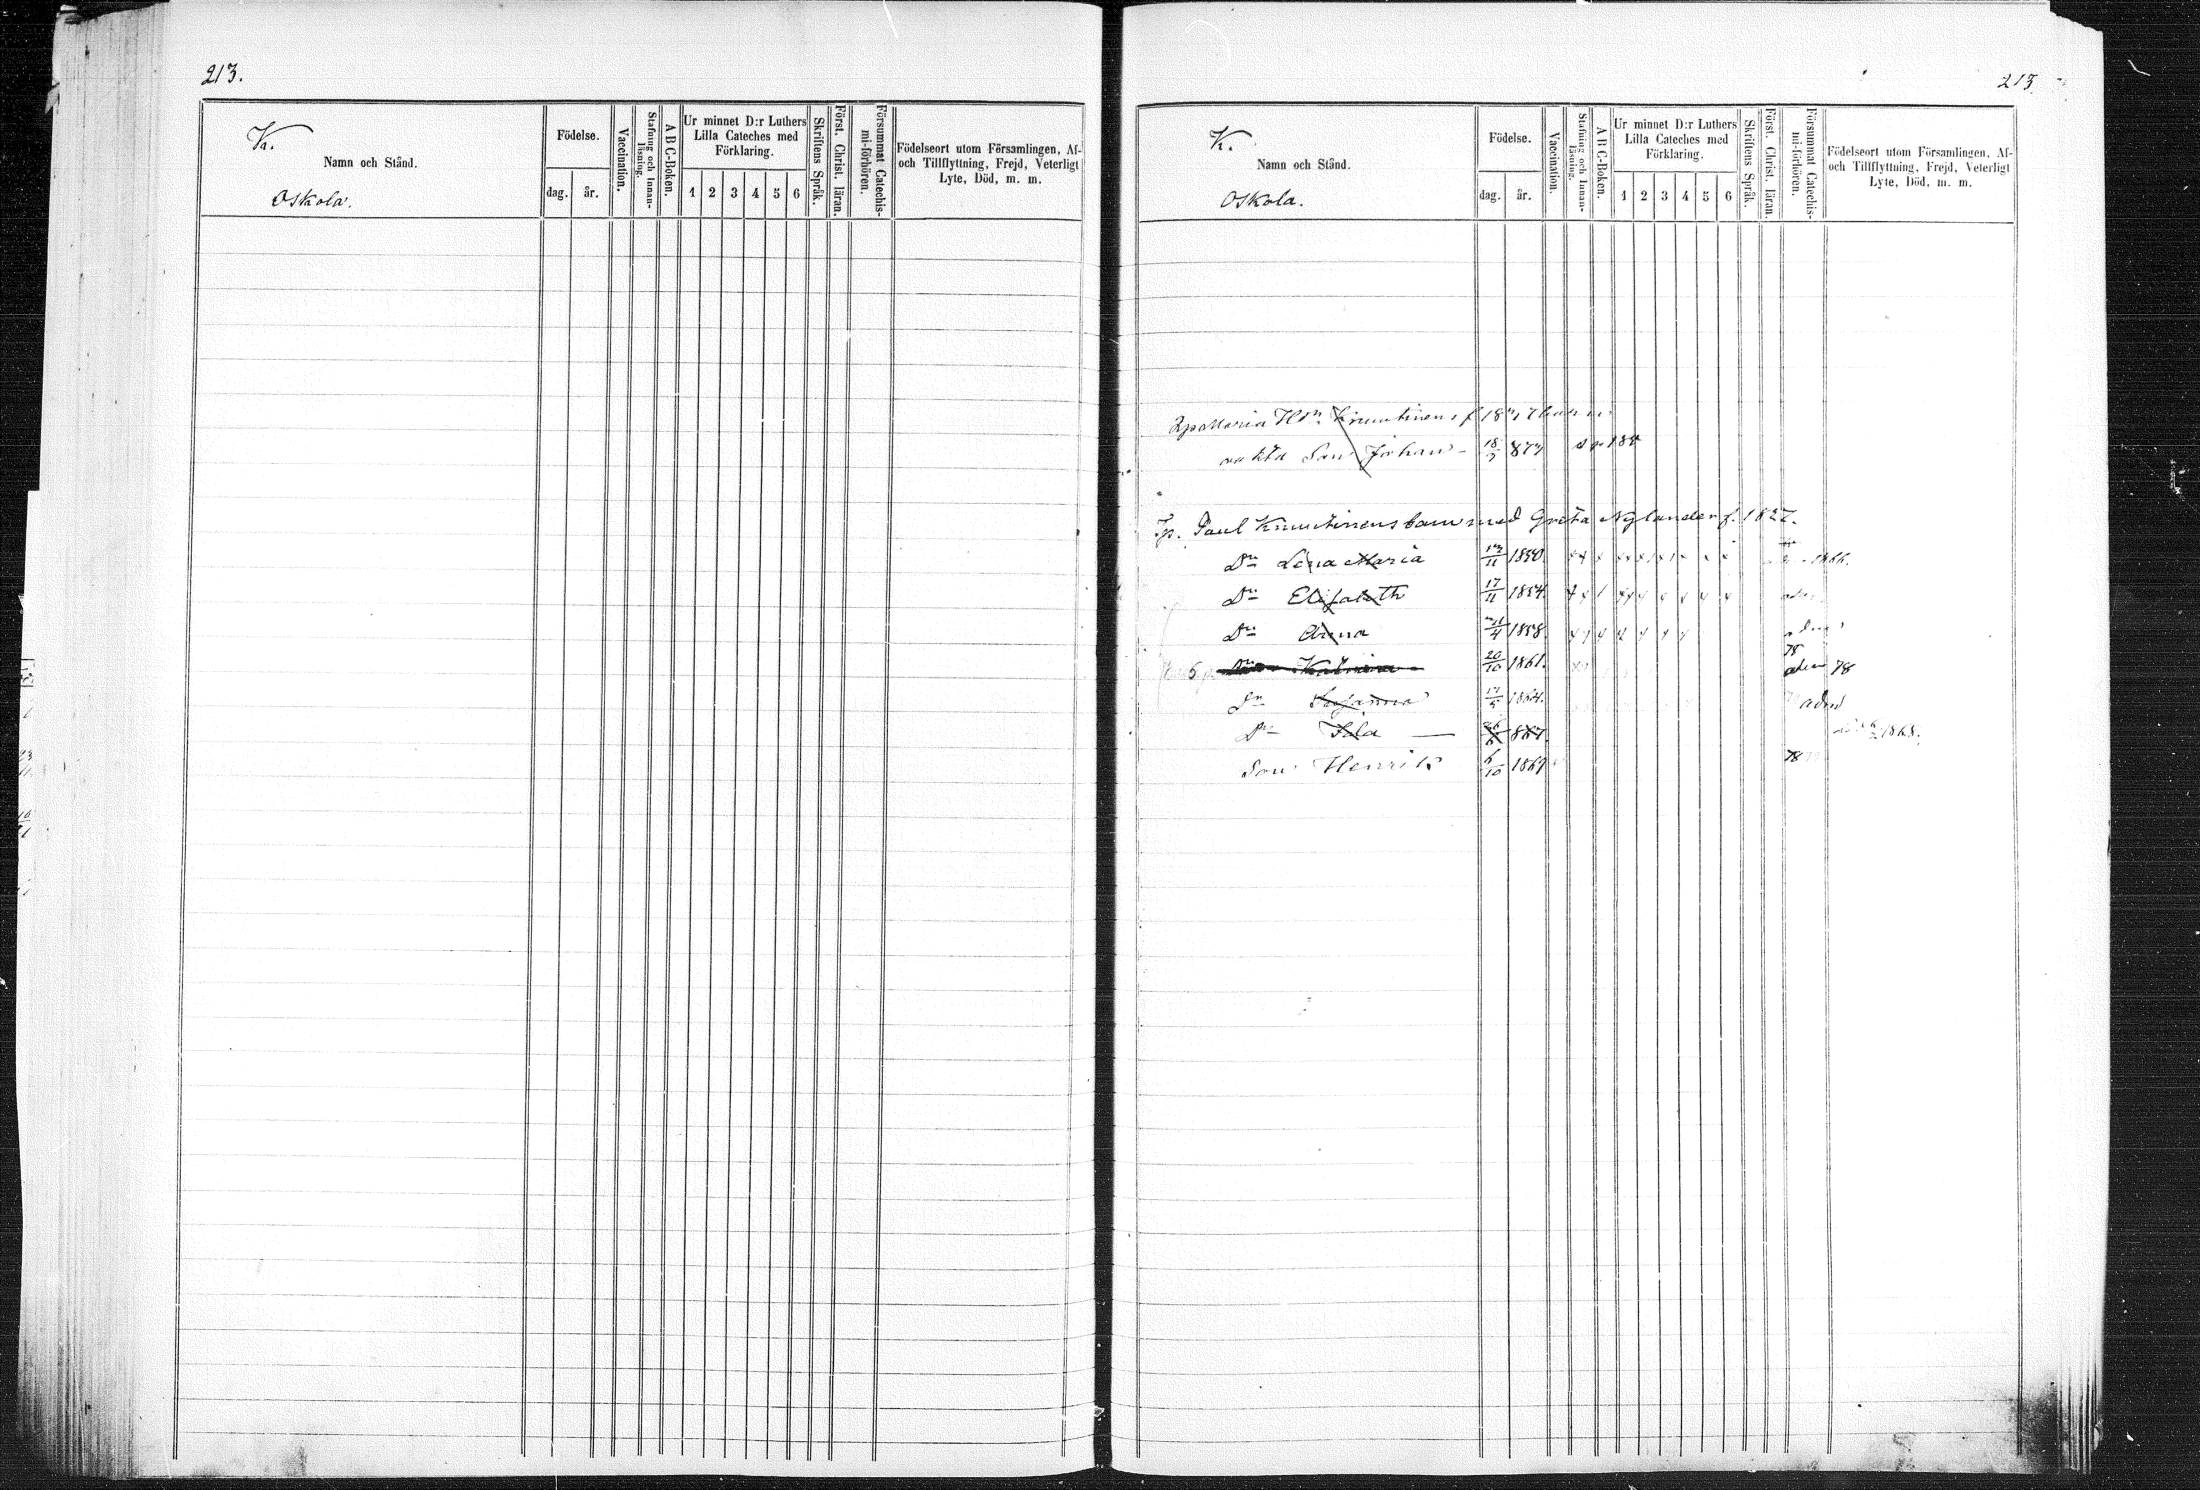 213.
K.
Namn och Stånd.
Oskola.
Födelse.
dag. år.
Vaccination.
Stafning och Innan-läsning.
A B C-Boken.
Ur minnet D:r Luthers
Lilla Cateches med
Förklaring.
1 2 3 4 5 6
Skriftens Språk.
Först. Christ. läran.
Försummat Catechis-mi-förhören.
Födelseort utom Församlingen, Af-
och Tillflyttning, Frejd, Veterligt
Lyte, Död, m. m.
213
K.
Namn och Stånd.
Oskola.
Födelse.
dag. år.
Vaccination.
Stafning och Innan-läsning.
A B C-Boken.
Ur minnet D:r Luthers
Lilla Cateches med
Förklaring.
1 2 3 4 5 6
Skriftens Språk.
Först. Christ. läran.
Försummat Catechis-mi-förhören.
Födelseort utom Församlingen, Af-
och Tillflyttning, Frejd, Veterligt
Lyte, Död, m. m.
Maria Knuutinens f. 18
Son Johan - 18 187
Paul Knuutinens barn med Greta Nylander f. 1827.
Dr Lena Maria 11 1850. 1866.
Dr Elisabeth 17/11 1854.
Dr Anna 4 1858.
Dr Katrina 20/10 1861. 78
Dr Susanna 17/5 1864. adm
Dr Ida — 26/6 867. 1868.
Son Henrik 6/10 1869 78